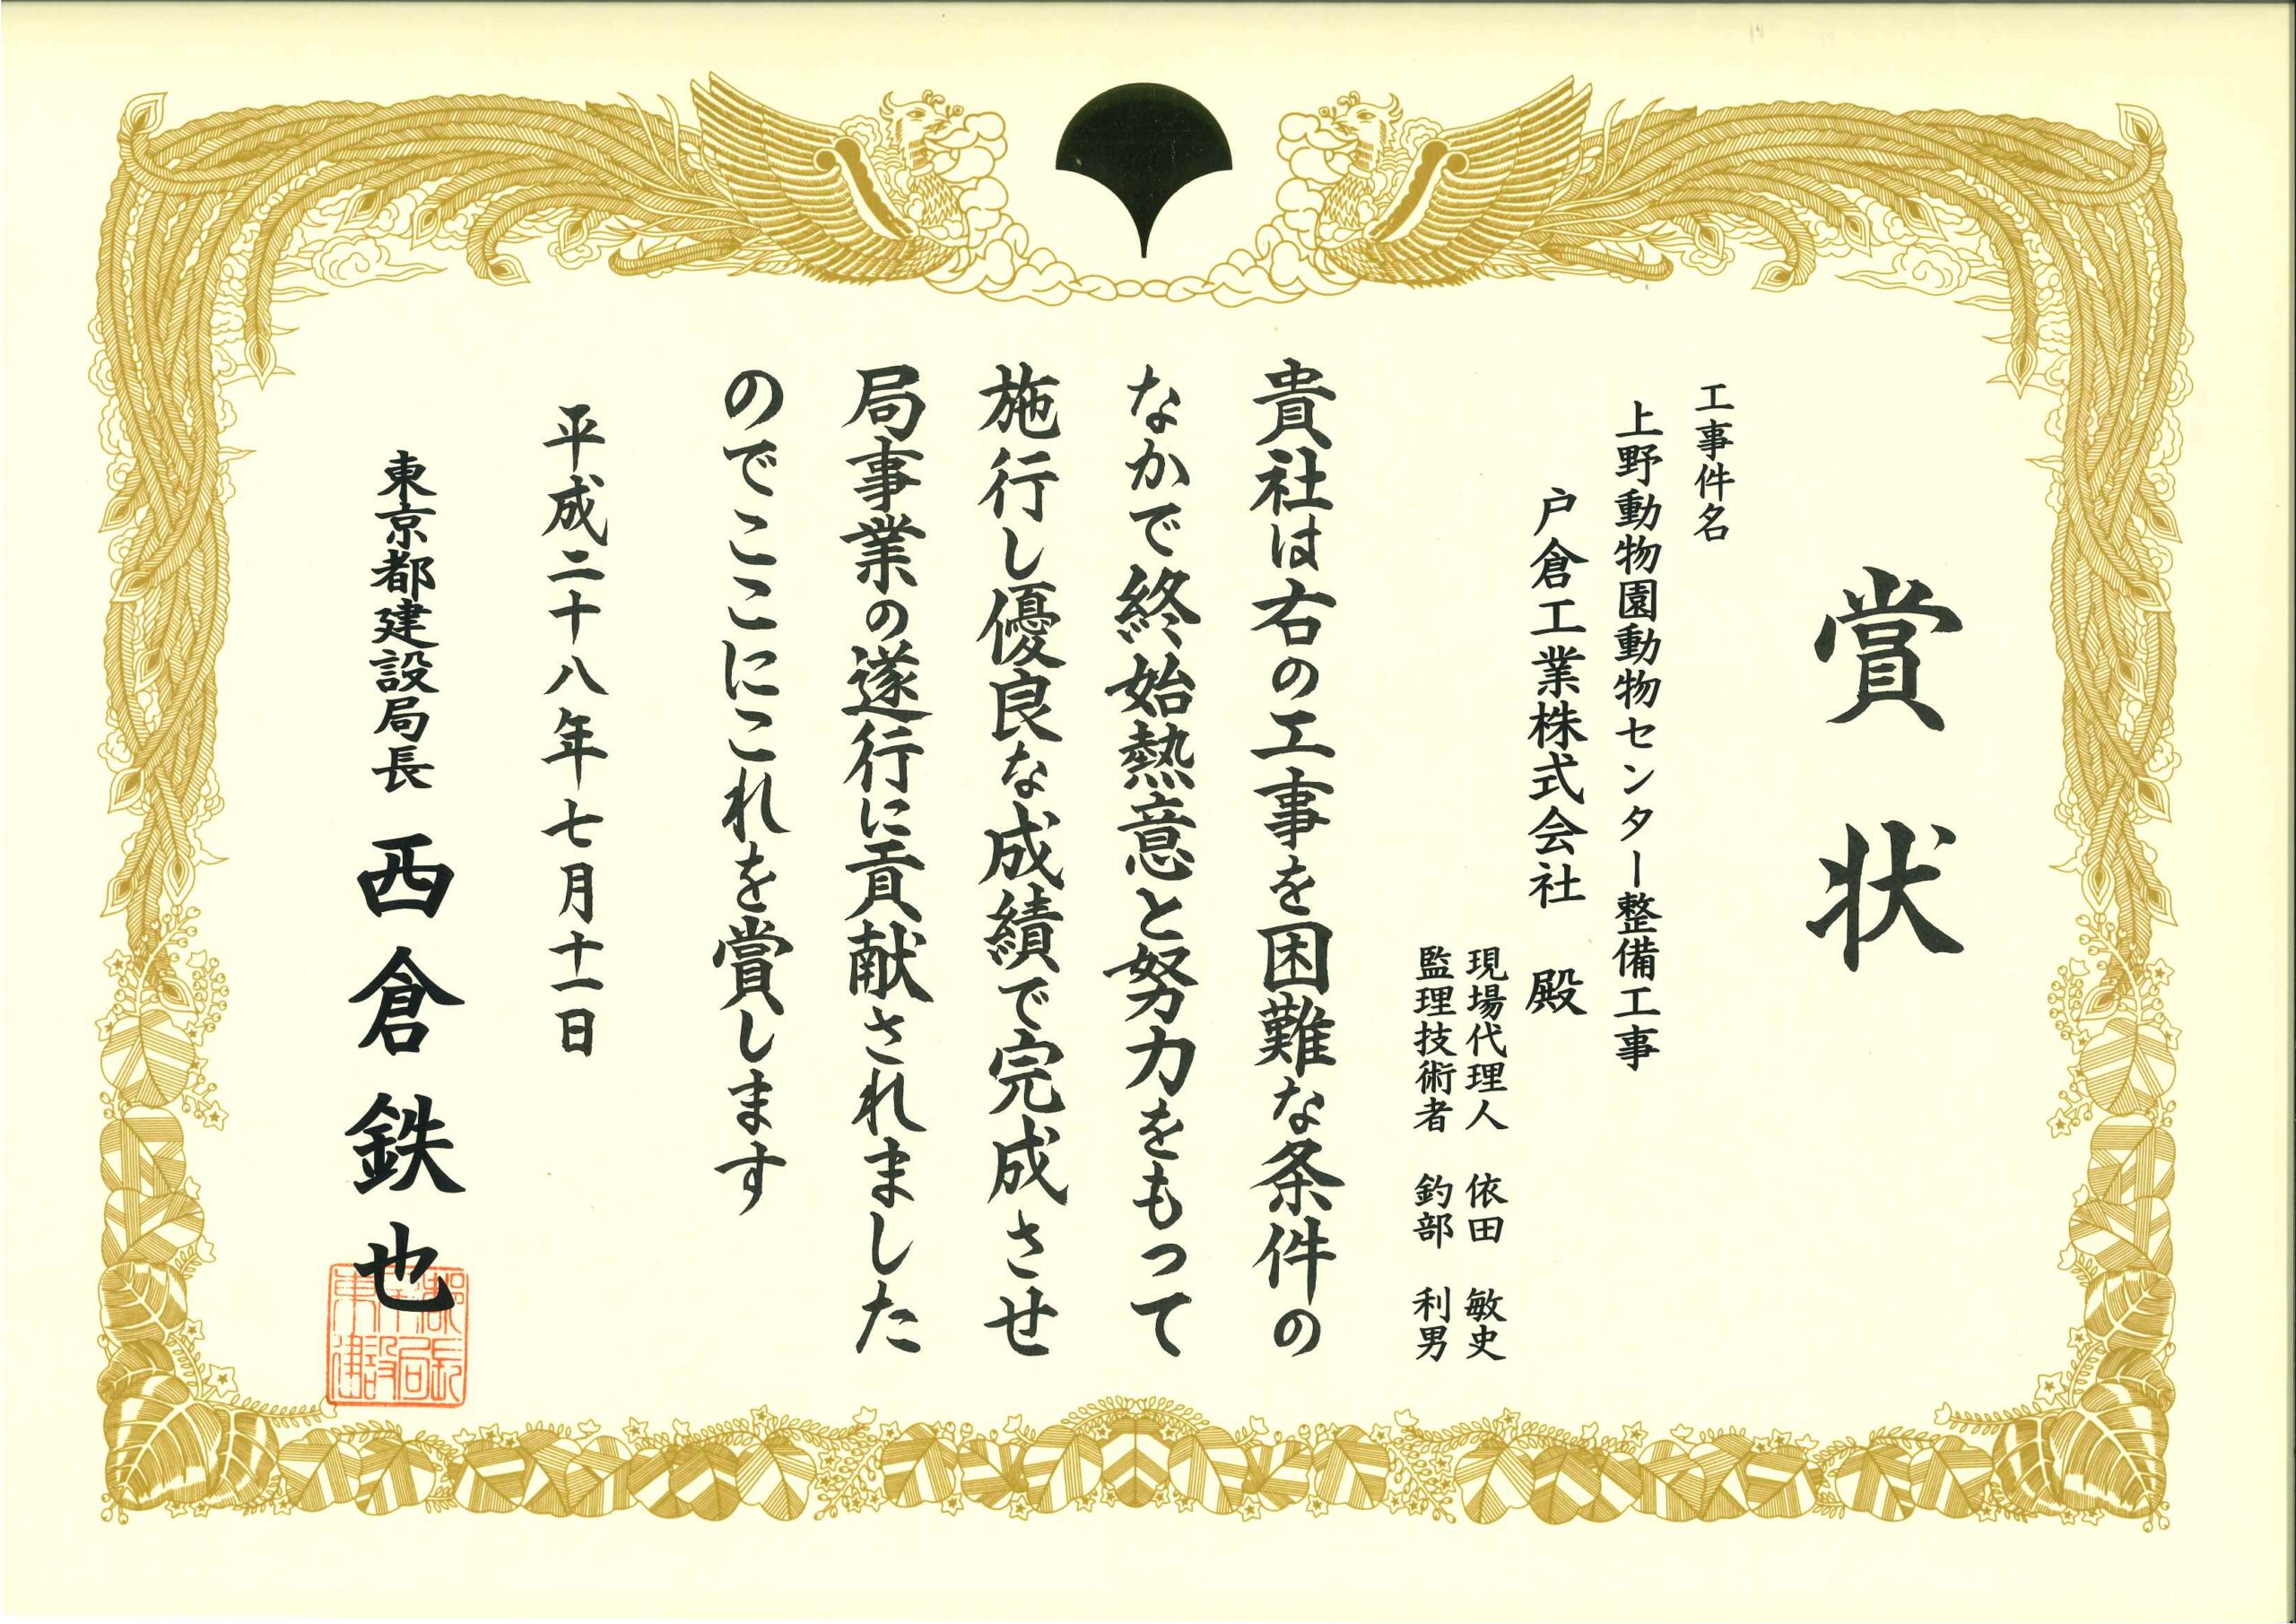 賞状
工事件名
上野動物園動物センター整備工事
戸倉工業株式会社 殿
現場代理人 依田 敏史
監理技術者 釣部 利男
貴社は右の工事を困難な条件の
なかで終始熱意と努力をもって
施行し優良な成績で完成させ
局事業の遂行に貢献されました
のでここにこれを賞します
平成二十八年七月十一日
東京都建設局長 西倉鉄也
東京都建設局長